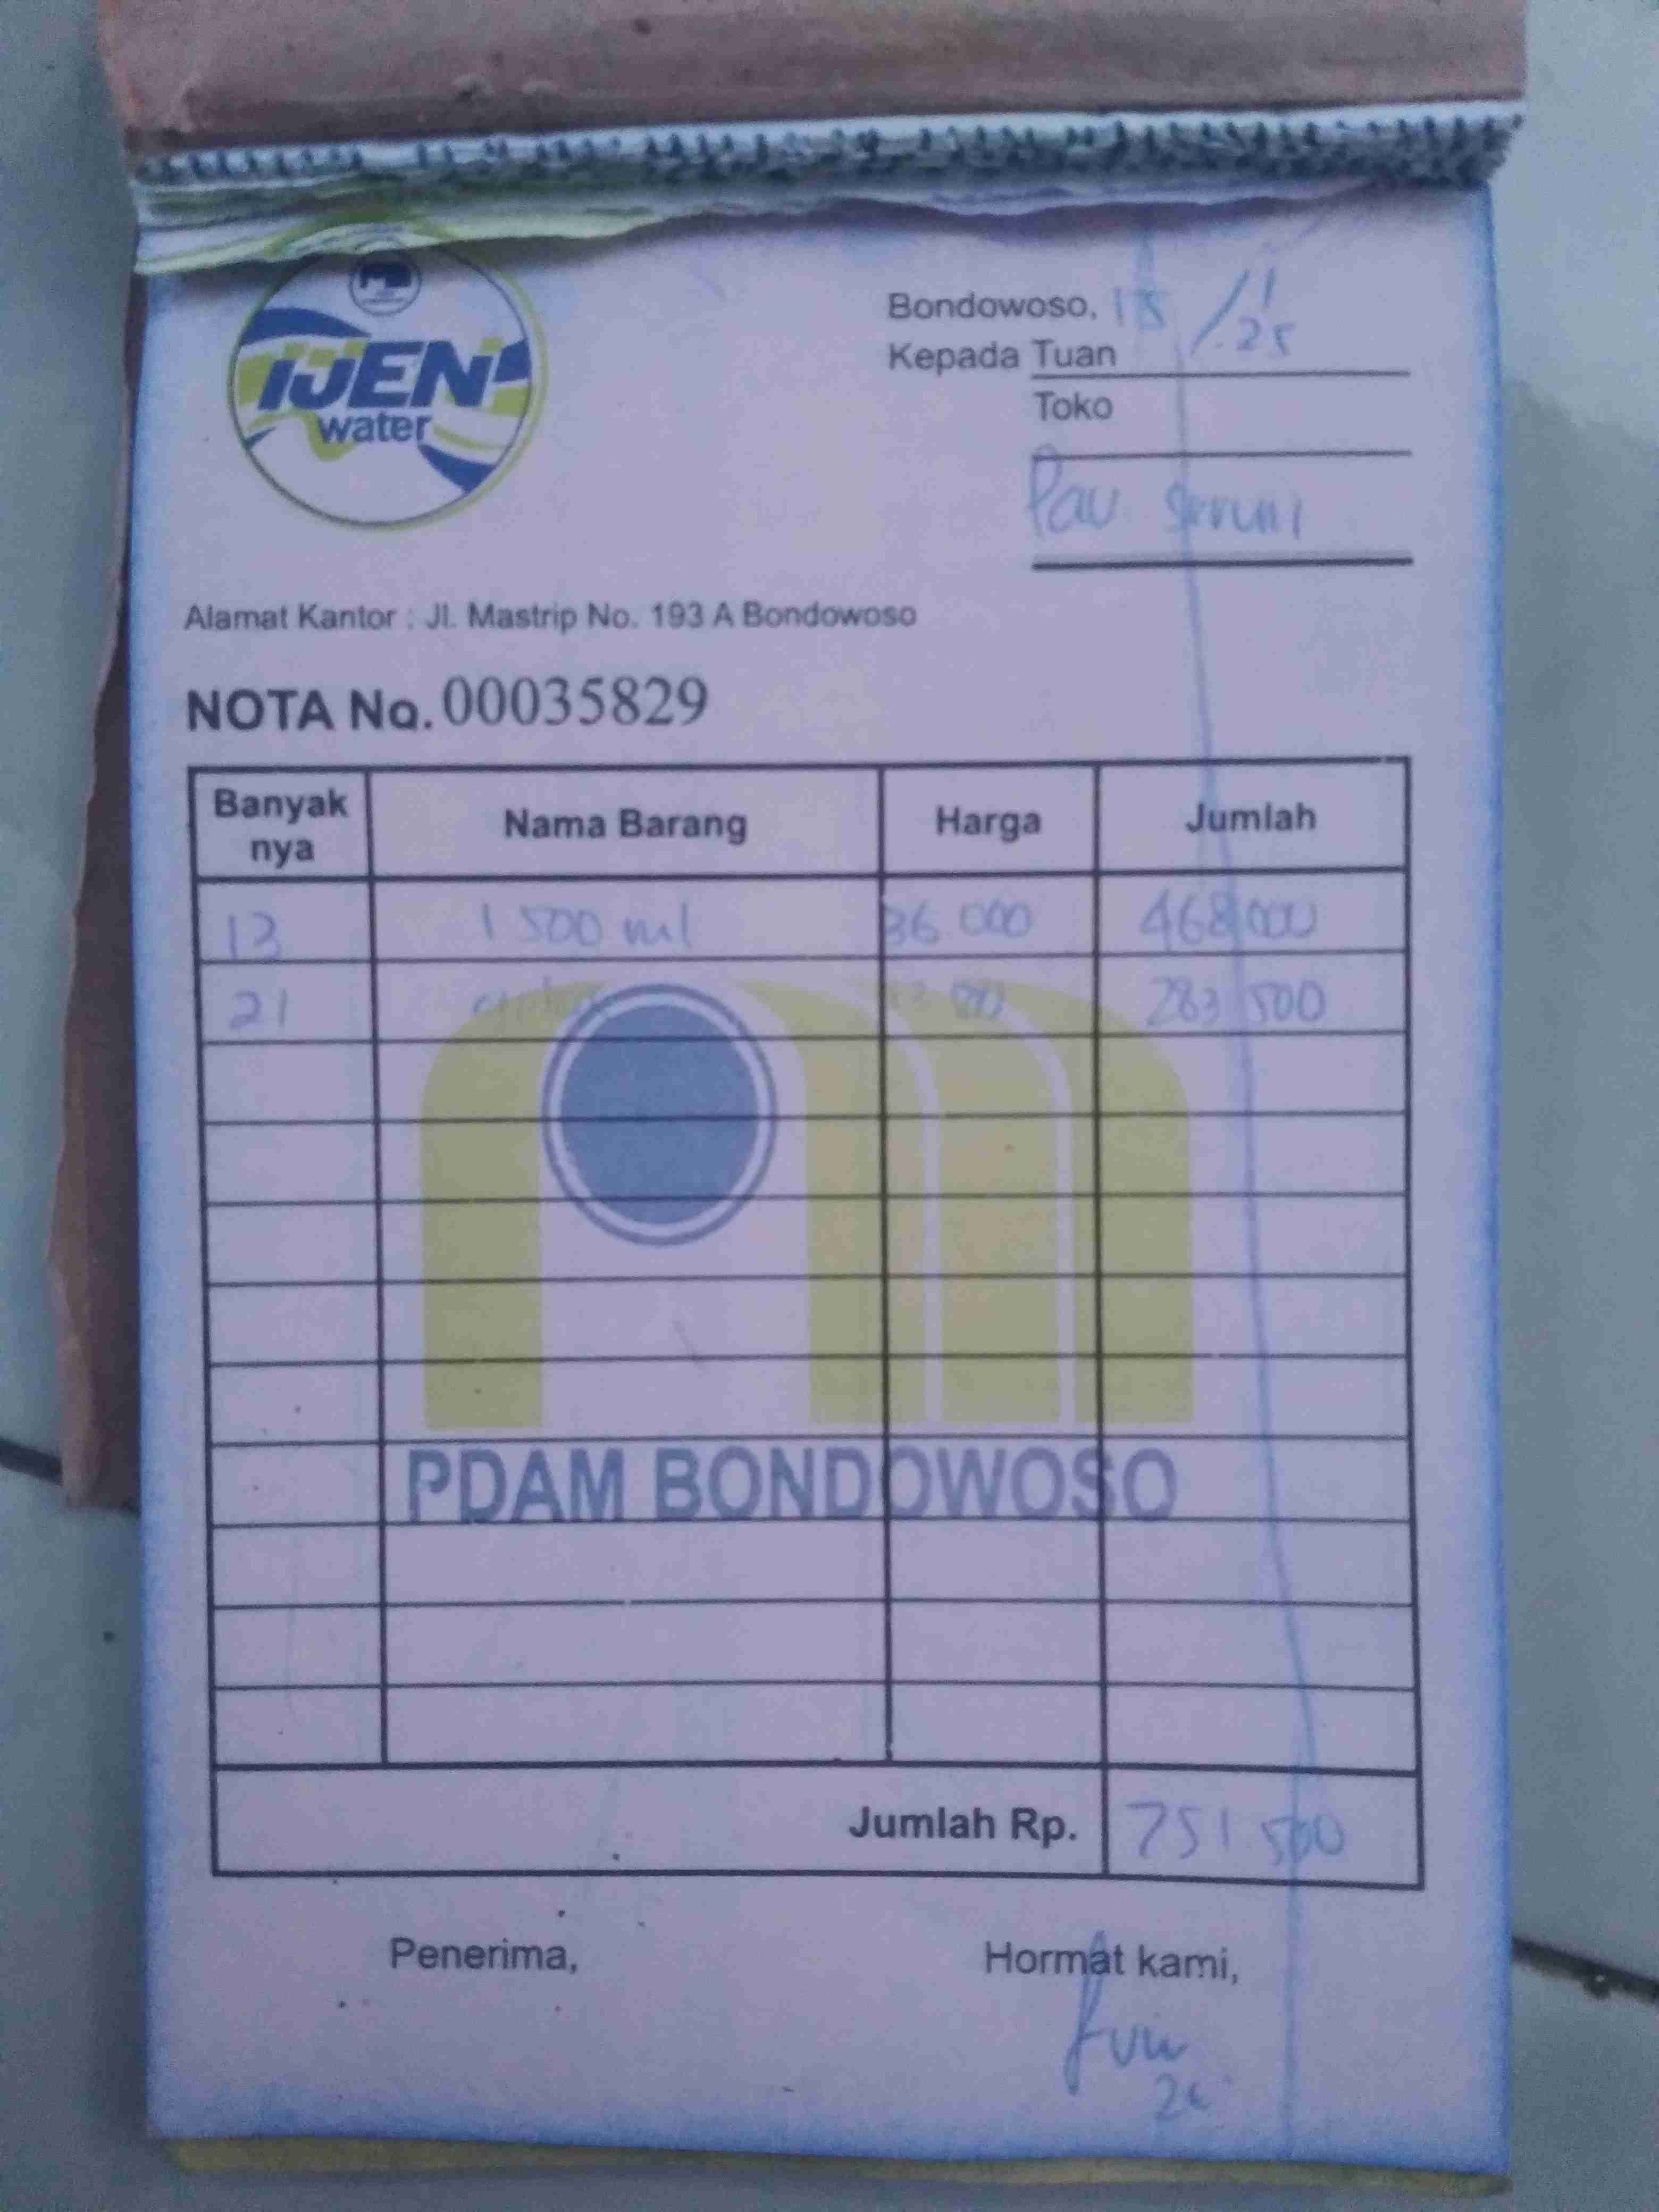 IJEN
water
Bondowoso, 15/1.25
Kepada Tuan
Toko
Pav Seruni
Alamat Kantor : Jl. Mastrip No. 193 A Bondowoso
NOTA No. 00035829
Banyak nya Nama Barang Harga Jumlah
13 1500 ml 36.000 468.000
21 283.500
PDAM BONDOWOSO
Jumlah Rp. 751.500
Penerima, Hormat kami,